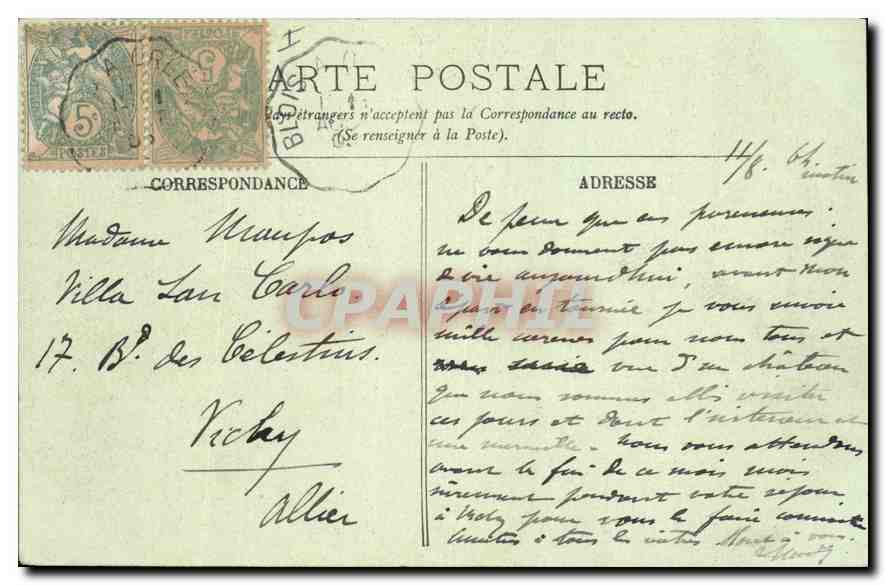 5c
POSTES
5
A ORLE
BLOIS A O
CARTE POSTALE
Pays étrangers n'acceptent pas la Correspondance au recto.
(Se renseigner à la Poste).
CORRESPONDANCE
Madame Maupas
Villa San Carlo.
17. Bd. des Célestins.
Vichy
Allier
ADRESSE
11/8. matin
De peur que ces
ne vous donnent pas encore signe
de vie aujourd'hui, avant mon
départ en tournée je vous envoie
mille caresses pour nous tous et
vue d'un château
que nous sommes allés visiter
ces jours et dont l'intérieur est
une merveille. Nous vous attendons
avant la fin de ce mois mais
sûrement pendant votre séjour
à Vichy pour vous le faire connaître
Amitiés à tous les vôtres à vous
CPAPHIL